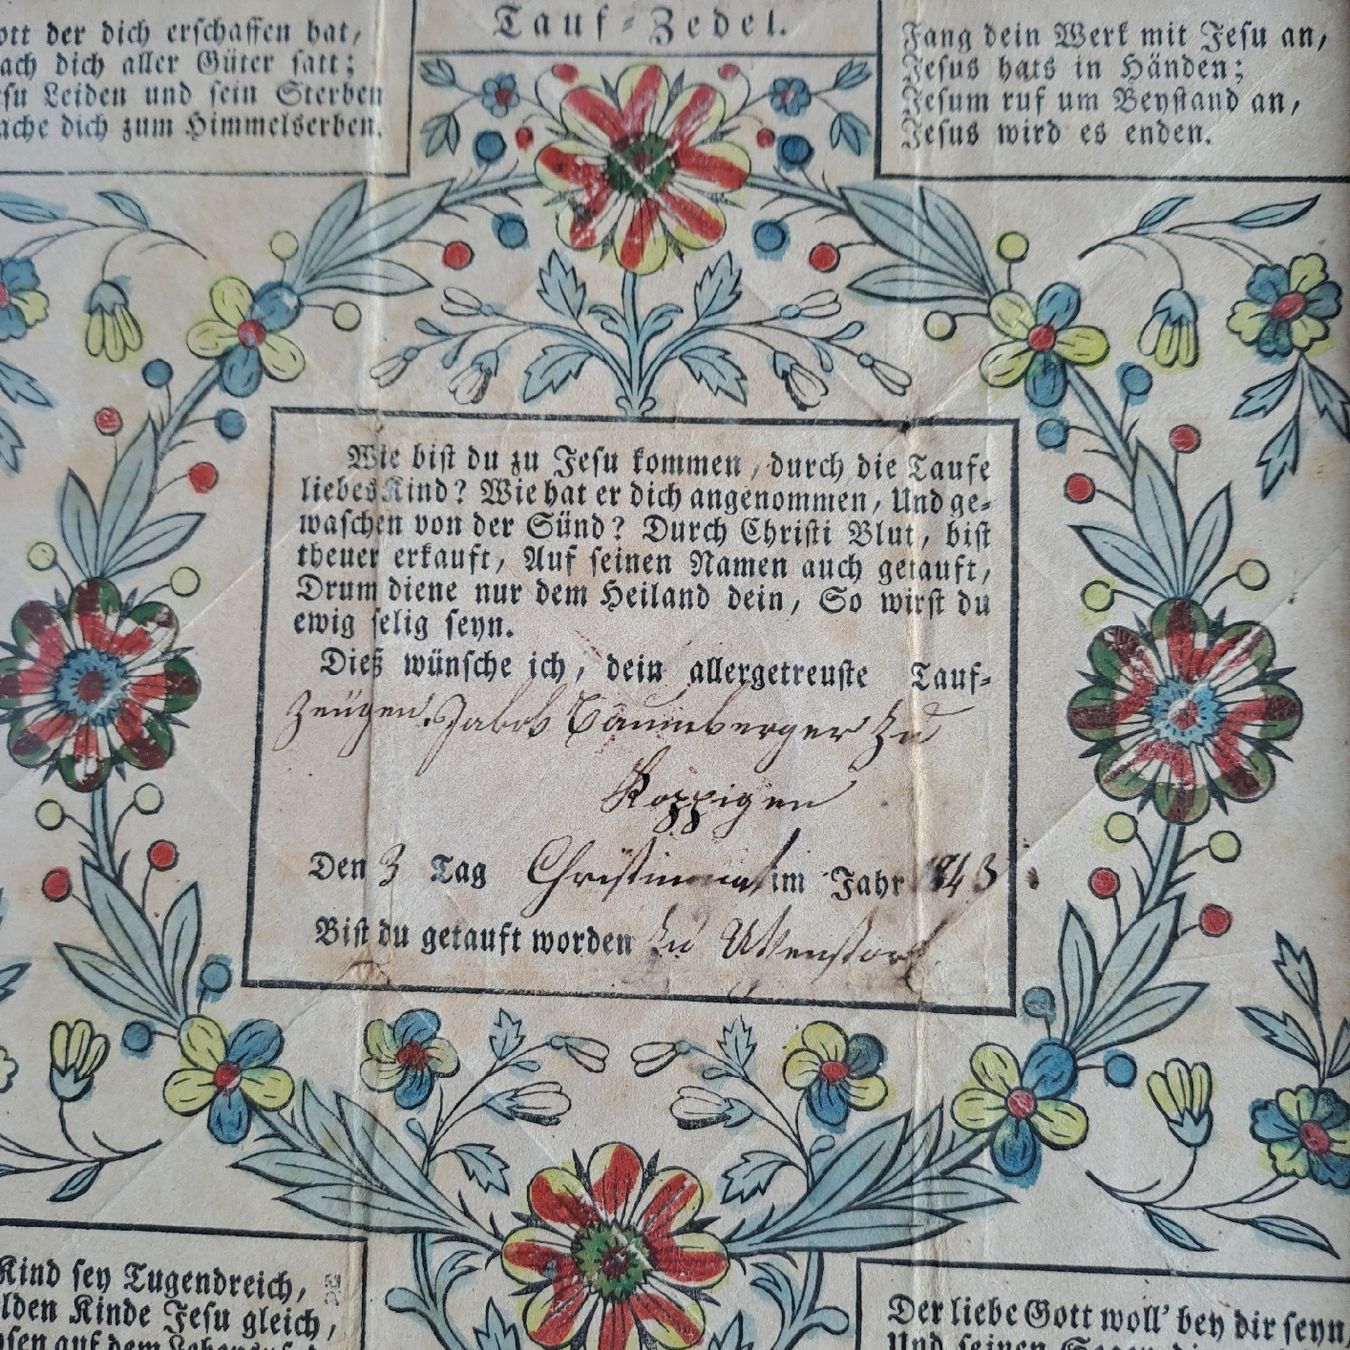 Tauf-Zedel.
ott der dich erschaffen hat,
ach dich aller Güter satt;
esu Leiden und sein Sterben
ache dich zum Himmelserben.
Fang dein Werk mit Jesu an,
Jesus hats in Händen;
Jesum ruf um Beystand an,
Jesus wird es enden.
Wie bist du zu Jesu kommen, durch die Taufe
liebes Kind? Wie hat er dich angenommen, Und ge-
waschen von der Sünd? Durch Christi Blut, bist
theuer erkauft, Auf seinen Namen auch getauft,
Drum diene nur dem Heiland dein, So wirst du
ewig selig seyn.
Dieß wünsche ich, dein allergetreuste Tauf-
Zeügen. Jakob Baumberger zu
Koppigen
Den 3 Tag Christmonat im Jahr 1843
Bist du getauft worden zu Utzenstorf
Kind sey Tugendreich,
lden Kinde Jesu gleich,
auf dem
Der liebe Gott woll' bey dir seyn,
Und seinen Segen